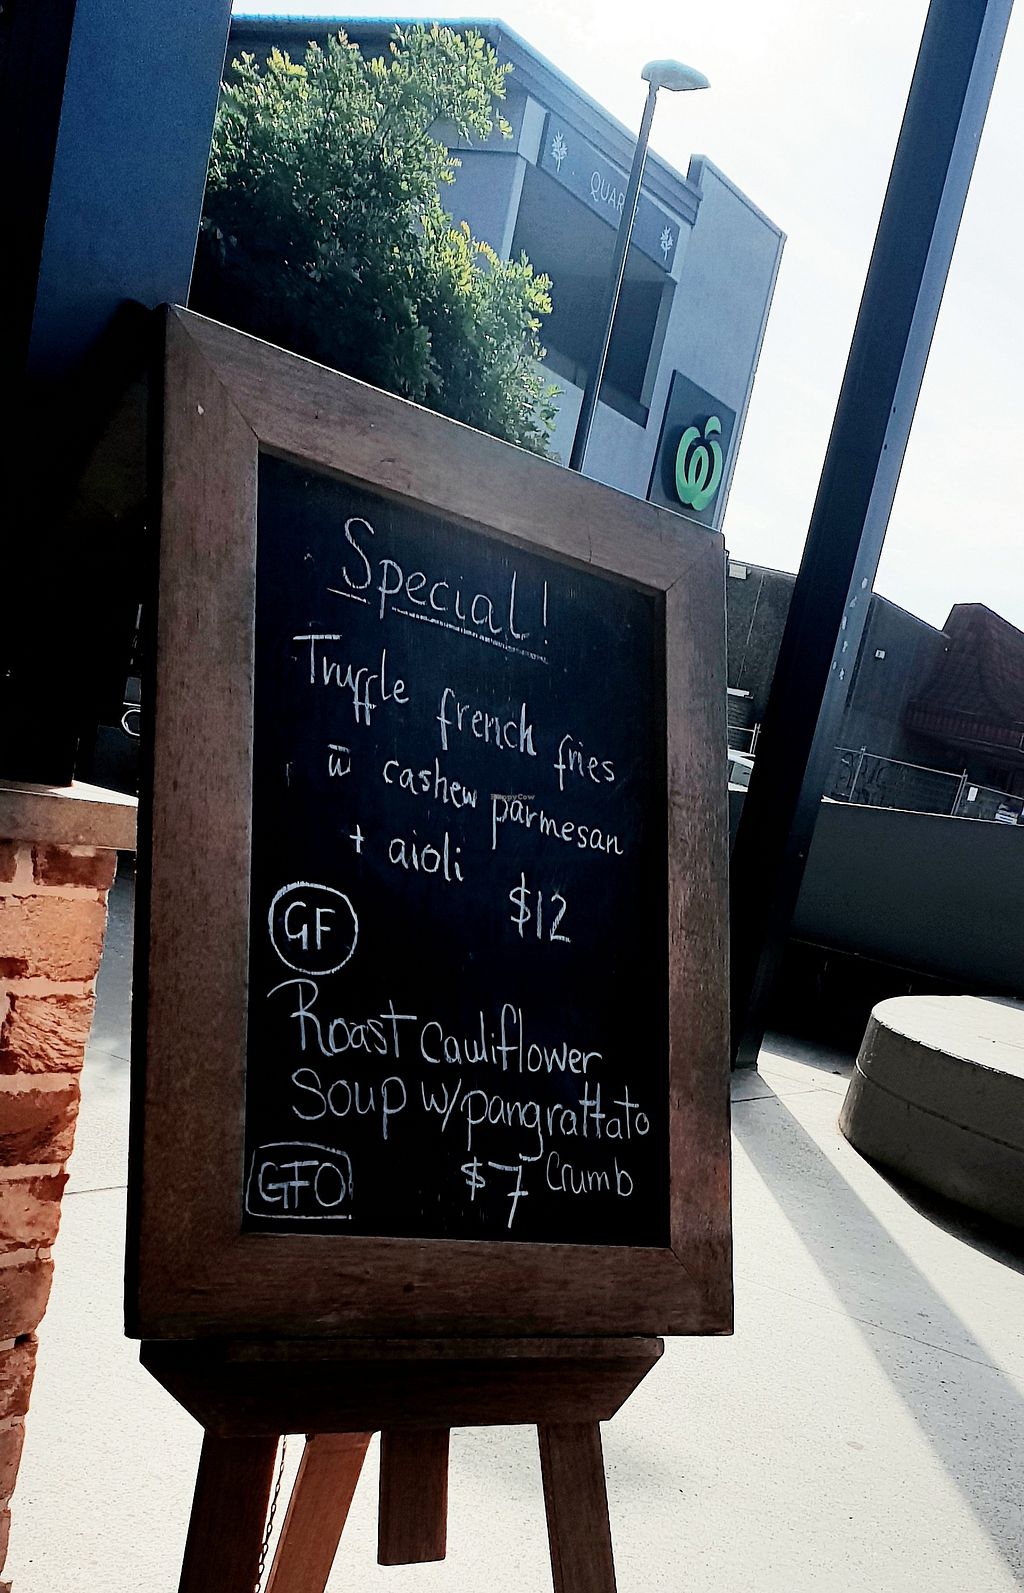 Special!
Truffle french fries
w̅ cashew parmesan
+ aioli
$12
GF
Roast Cauliflower
Soup w/pangrattato
Crumb
$7
GFO
HappyCow